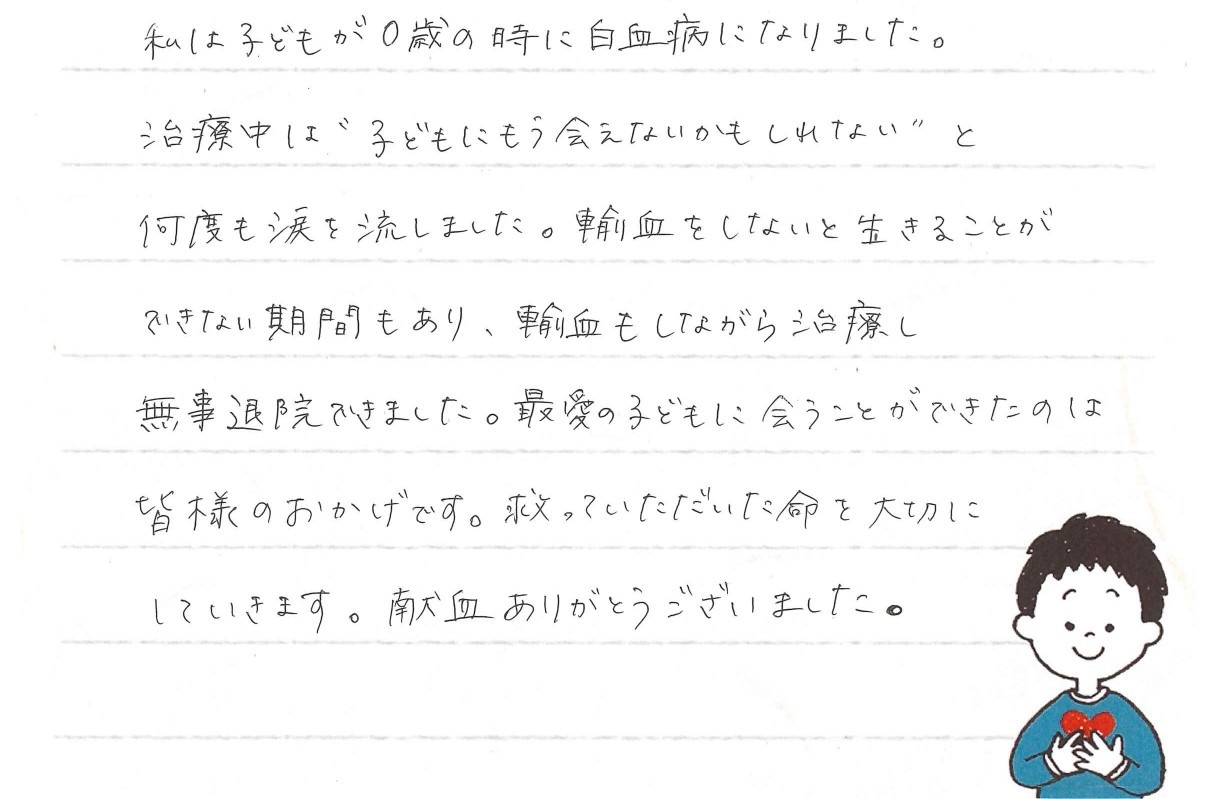 私は子どもが0歳の時に白血病になりました。
治療中は〝子どもにもう会えないかもしれない〟と
何度も涙を流しました。輸血をしないと生きることが
できない期間もあり、輸血もしながら治療し
無事退院できました。最愛の子どもに会うことができたのは
皆様のおかげです。救っていただいた命を大切に
していきます。献血ありがとうございました。